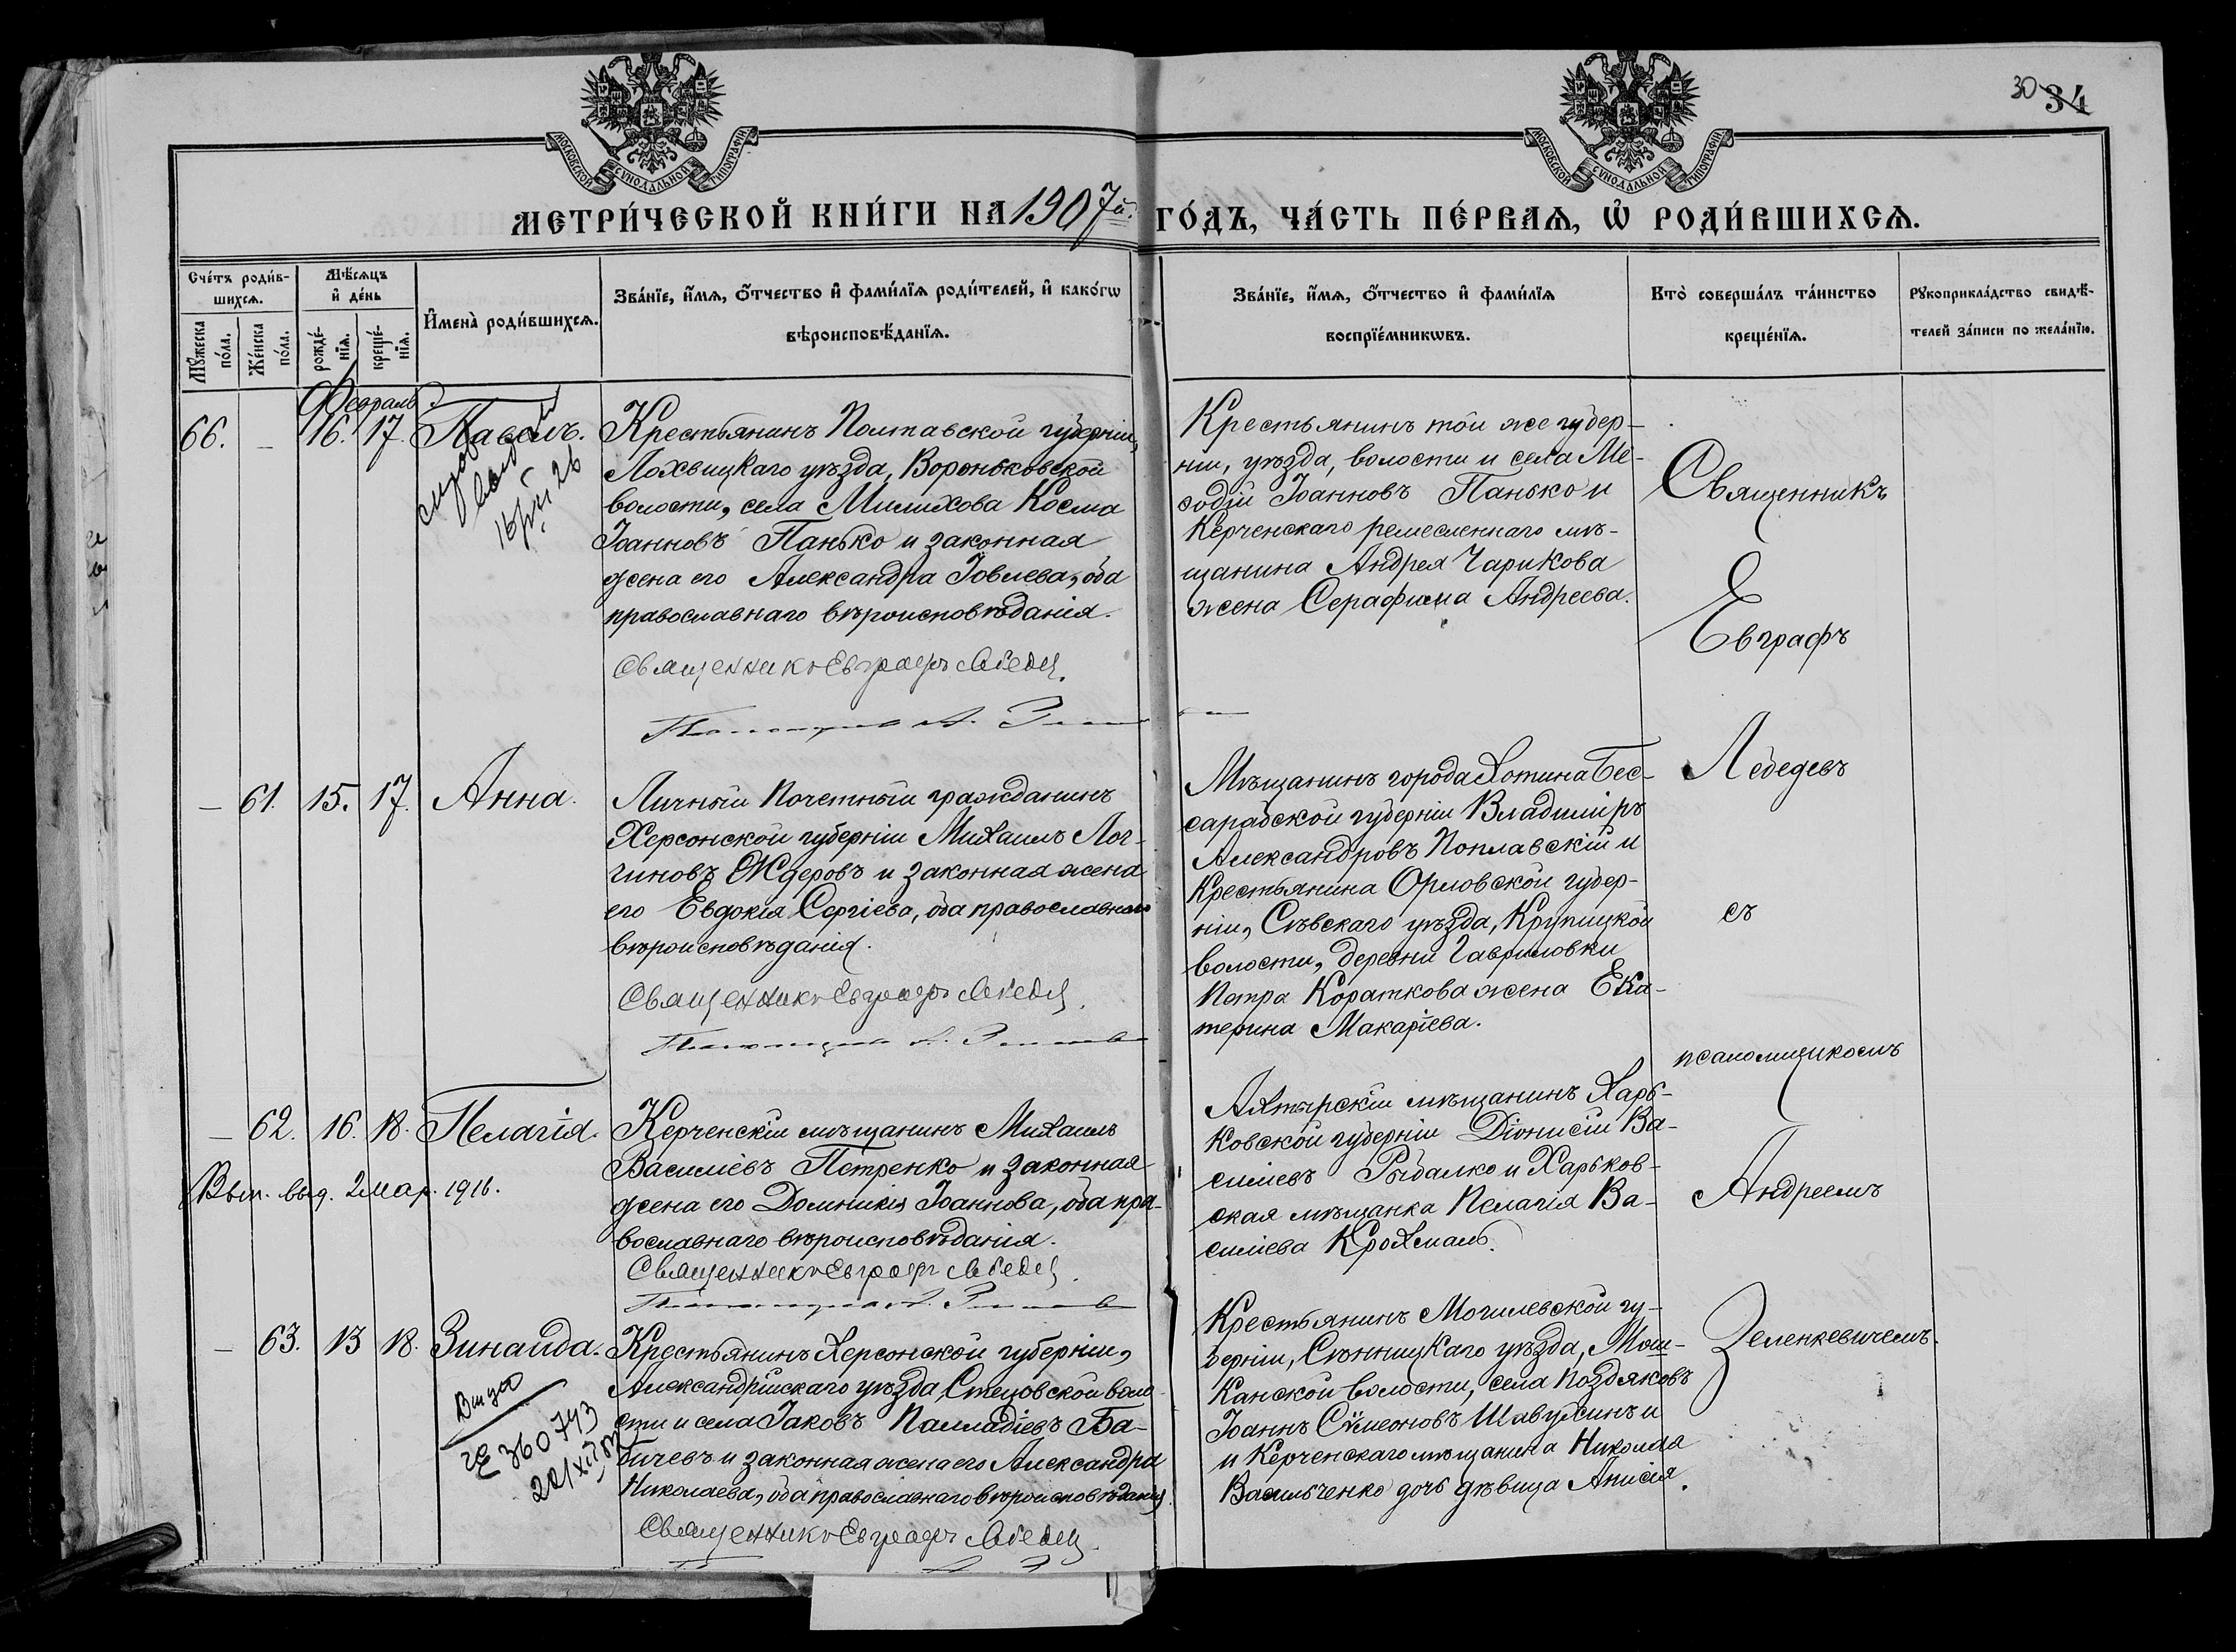 30 34
МОСКОВСКОЙ СѴНОДАЛЬНОЙ ТИПОГРАФІИ
МОСКОВСКОЙ СѴНОДАЛЬНОЙ ТИПОГРАФІИ
МЕТРИ́ЧЕСКОЙ КНИ́ГИ НА 1907й. ГО́ДЪ, ЧА́СТЬ ПЕ́РВАѦ, Ѽ РОДИ́ВШИХСѦ.
Сче́тъ роди́в-
шихсѧ.
Мꙋ́жеска
по́ла.
Же́нска
по́ла.
Мѣ́сѧцъ
и҆ де́нь
рожде́-
нїѧ.
креще́-
нїѧ.
И҆мена̀ роди́вшихсѧ.
Зва́нїе, и҆́мѧ, ѻ҆́тчество и҆ фами́лїѧ роди́телей, и҆ како́гѡ
вѣроисповѣ́данїѧ.
Зва́нїе, и҆́мѧ, ѻ҆́тчество и҆ фами́лїѧ
воспрїе́мникѡвъ.
Кто̀ соверша́лъ та́инство
креще́нїѧ.
Рꙋкоприкла́дство свидѣ́-
телей за́писи по жела́нїю.
Февраль
66. — 16. 17. Павелъ.
Крестьянинъ Полтавской губерніи,
Лохвицкаго уѣзда, Вороньковской
волости, села Милихова Косма
Іоанновъ Панько и законная
жена его Александра Іовлева, оба
православнаго вѣроисповѣданія.
Священникъ Евграфъ Лебедев
Крестьянинъ той же губер-
ніи, уѣзда, волости и села Ме-
ѳодій Іоанновъ Панько и
Керченскаго ремесленнаго мѣ-
щанина Андрея Чарикова
жена Серафима Андреева.
Священникъ
Евграфъ
Лебедевъ
съ
псаломщикомъ
Андреемъ
Зеленкевичемъ.
— 61. 15. 17. Анна.
Личный Почетный гражданинъ
Херсонской губерніи Михаилъ Лог-
гиновъ Ждеровъ и законная жена
его Евдокія Сергіева, оба православнаго
вѣроисповѣданія.
Священникъ Евграфъ Лебедев
Мѣщанинъ города Хотина Бес-
сарабской губерніи Владиміръ
Александровъ Поплавскій и
Крестьянина Орловской губер-
ніи, Сѣвскаго уѣзда, Крупицкой
волости, деревни Гавриловки
Петра Короткова жена Ека-
терина Макаріева.
— 62. 16. 18. Пелагія.
Вып. выд. 2 мар. 1916.
Керченскій мѣщанинъ Михаилъ
Василіевъ Петренко и законная
жена его Домникія Іоаннова, оба пра-
вославнаго вѣроисповѣданія.
Священникъ Евграфъ Лебедев
Ахтырскій мѣщанинъ Харь-
ковской губерніи Діонисій Ва-
силіевъ Рыбалко и Харьков-
ская мѣщанка Пелагія Ва-
силіева Крохмаль.
— 63. 13 18. Зинаида.
ЧЕ 360743
22/XII
Крестьянинъ Херсонской губерніи,
Александрійскаго уѣзда, Стецовской воло-
сти и села Іаковъ Палладіевъ Ба-
бичевъ и законная жена его Александра
Николаева, оба православнаго вѣроисповѣданія.
Священникъ Евграфъ Лебедев
Крестьянинъ Могилевской гу-
берніи, Сѣнницкаго уѣзда, Мош-
канской волости, села Поздяковъ
Іоаннъ Сѵмеоновъ Шавулинъ и
и Керченскаго мѣщанина Николая
Васильченко дочь дѣвица Анисія.